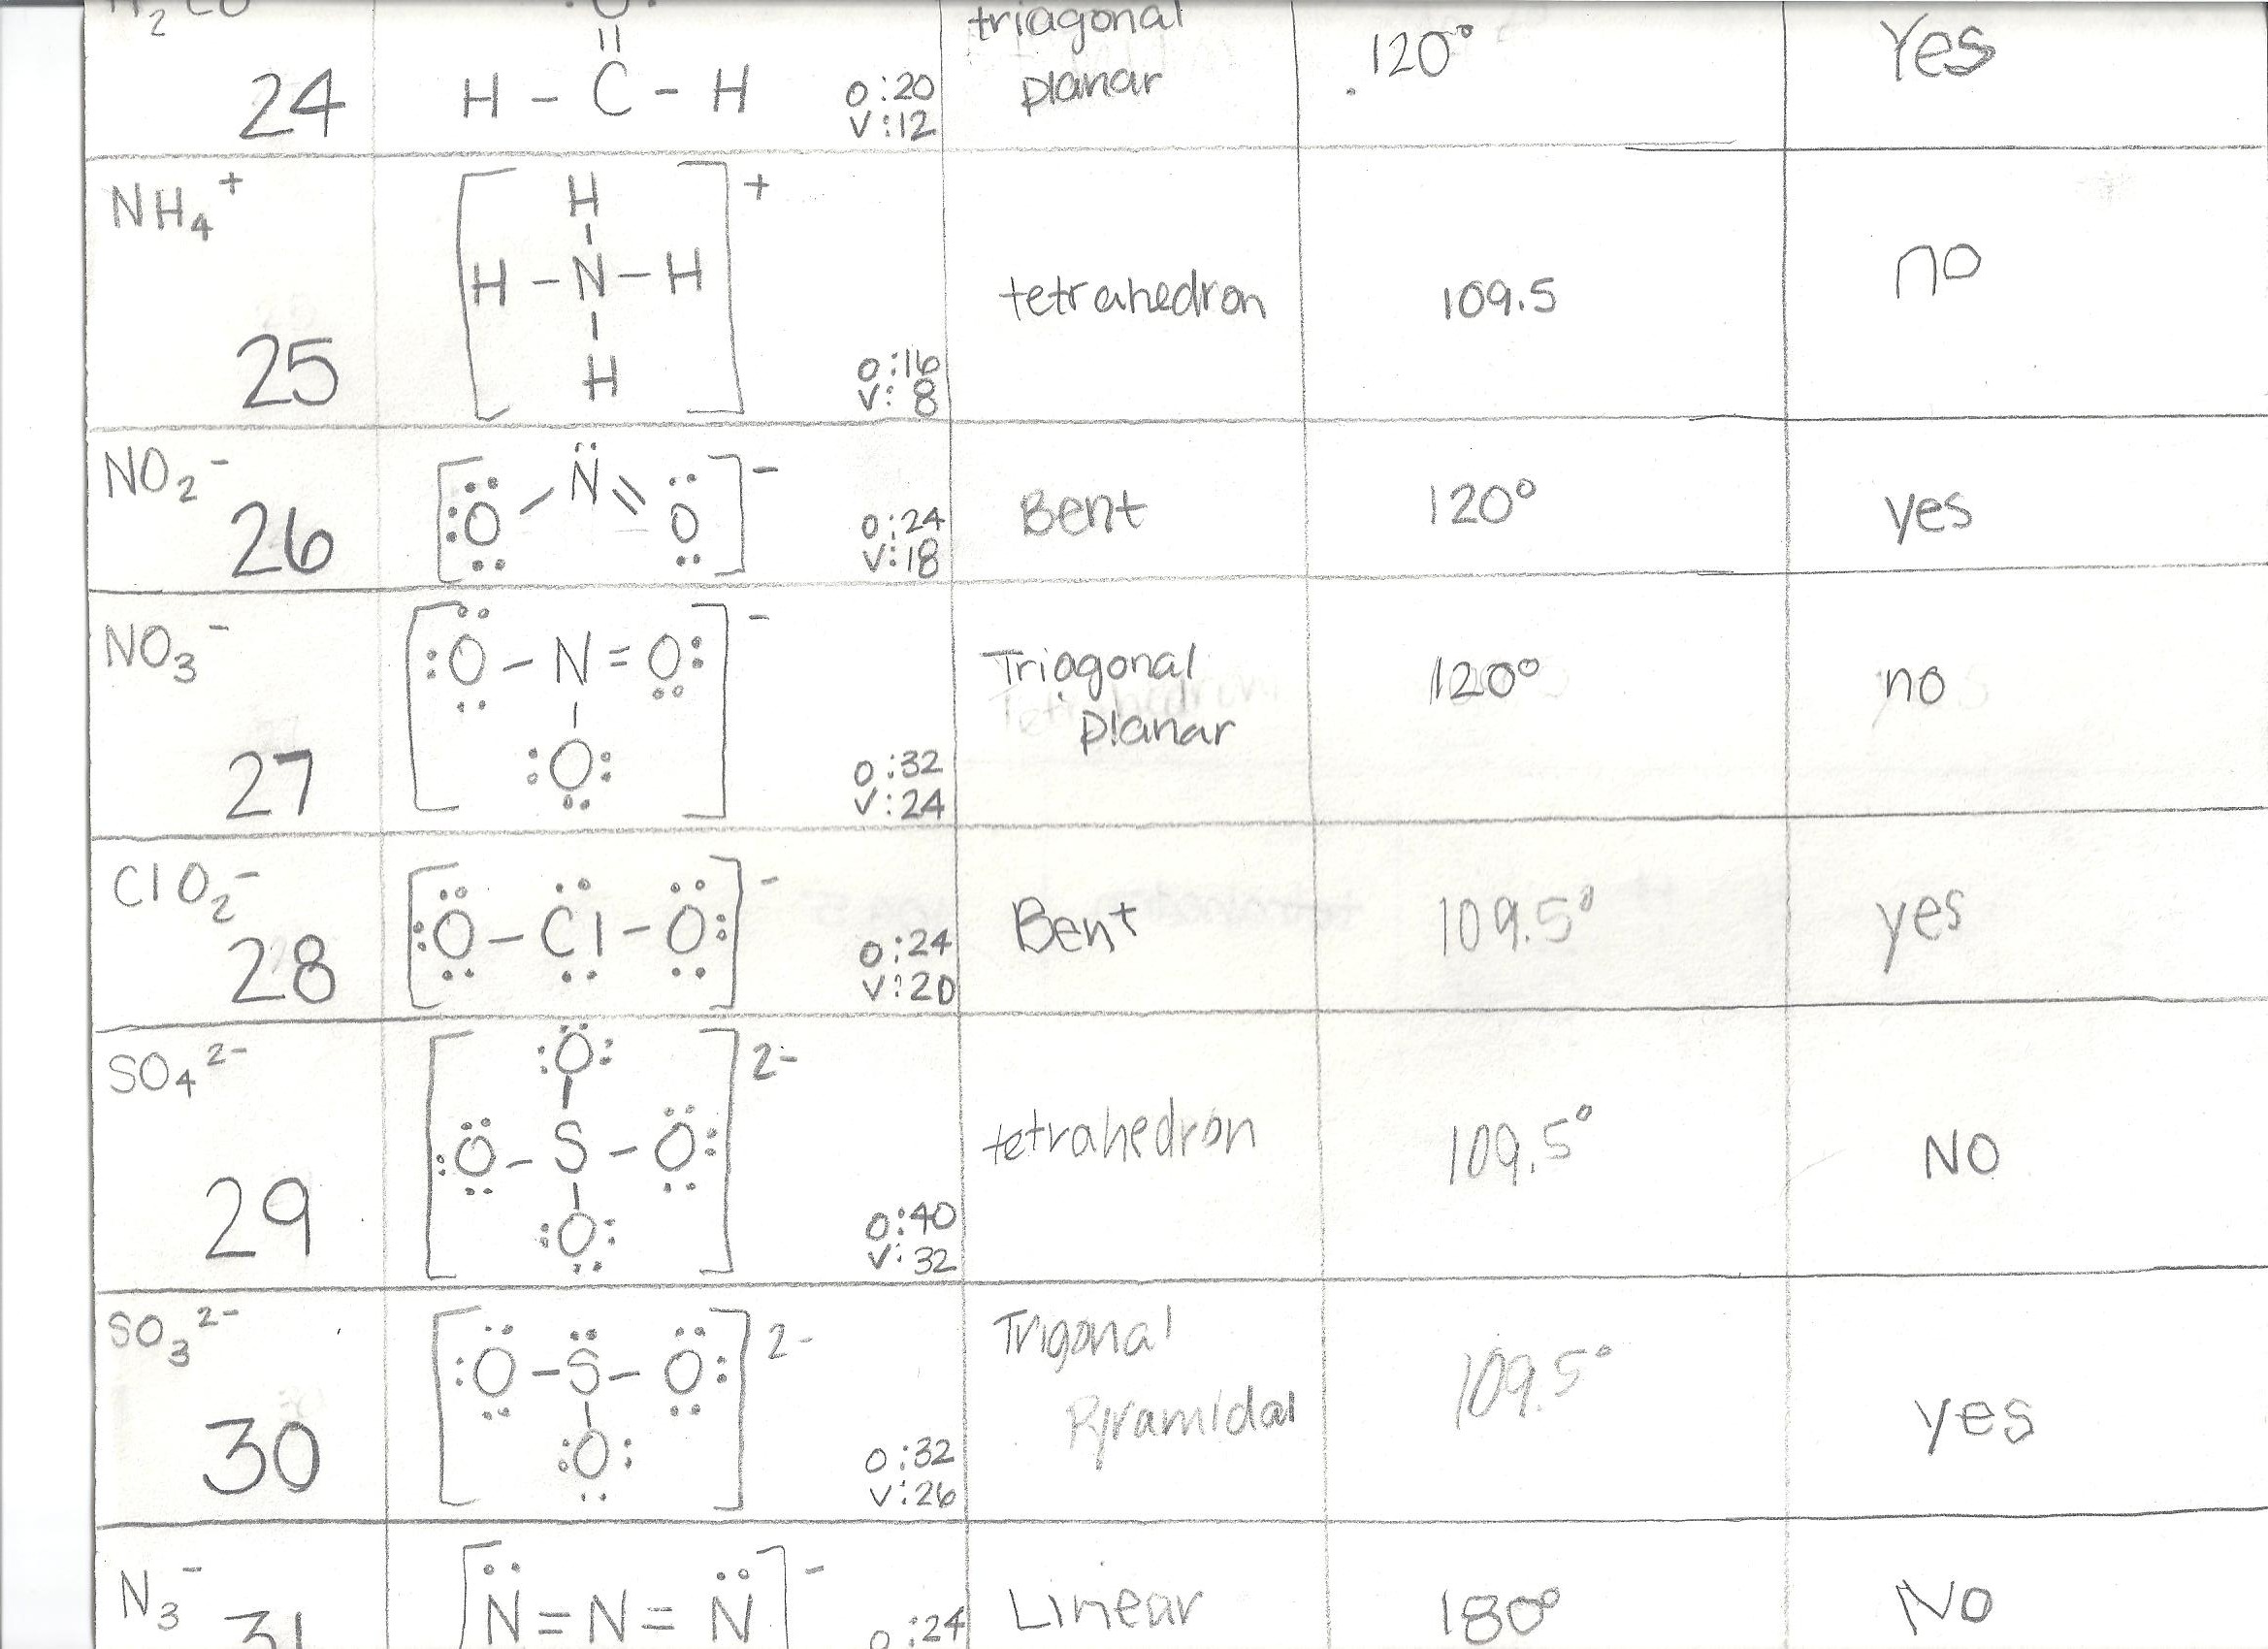 H2CO
24
:O:
||
H - C - H
O:20
V:12
triagonal
planar
120°
Yes
NH4+
25
[H
|
H - N - H
|
H]+
O:16
V: 8
tetrahedron
109.5
no
NO2-
26
[:Ö - N̈ = Ö]-
O:24
V:18
Bent
120°
yes
NO3-
27
[:Ö - N = O:
|
:O:]-
O:32
V:24
Triagonal
planar
120°
no
ClO2-
28
[:Ö - Cl - Ö:]-
O:24
V:20
Bent
109.5°
yes
SO4 2-
29
[:Ö:
|
:Ö - S - Ö:
|
:O:]2-
O:40
V:32
tetrahedron
109.5°
NO
SO3 2-
30
[:Ö - S̈ - Ö:
|
:O:]2-
O:32
V:26
Trigonal
Pyramidal
109.5°
yes
N3-
31
[N̈ = N = N̈]-
O:24
Linear
180°
No